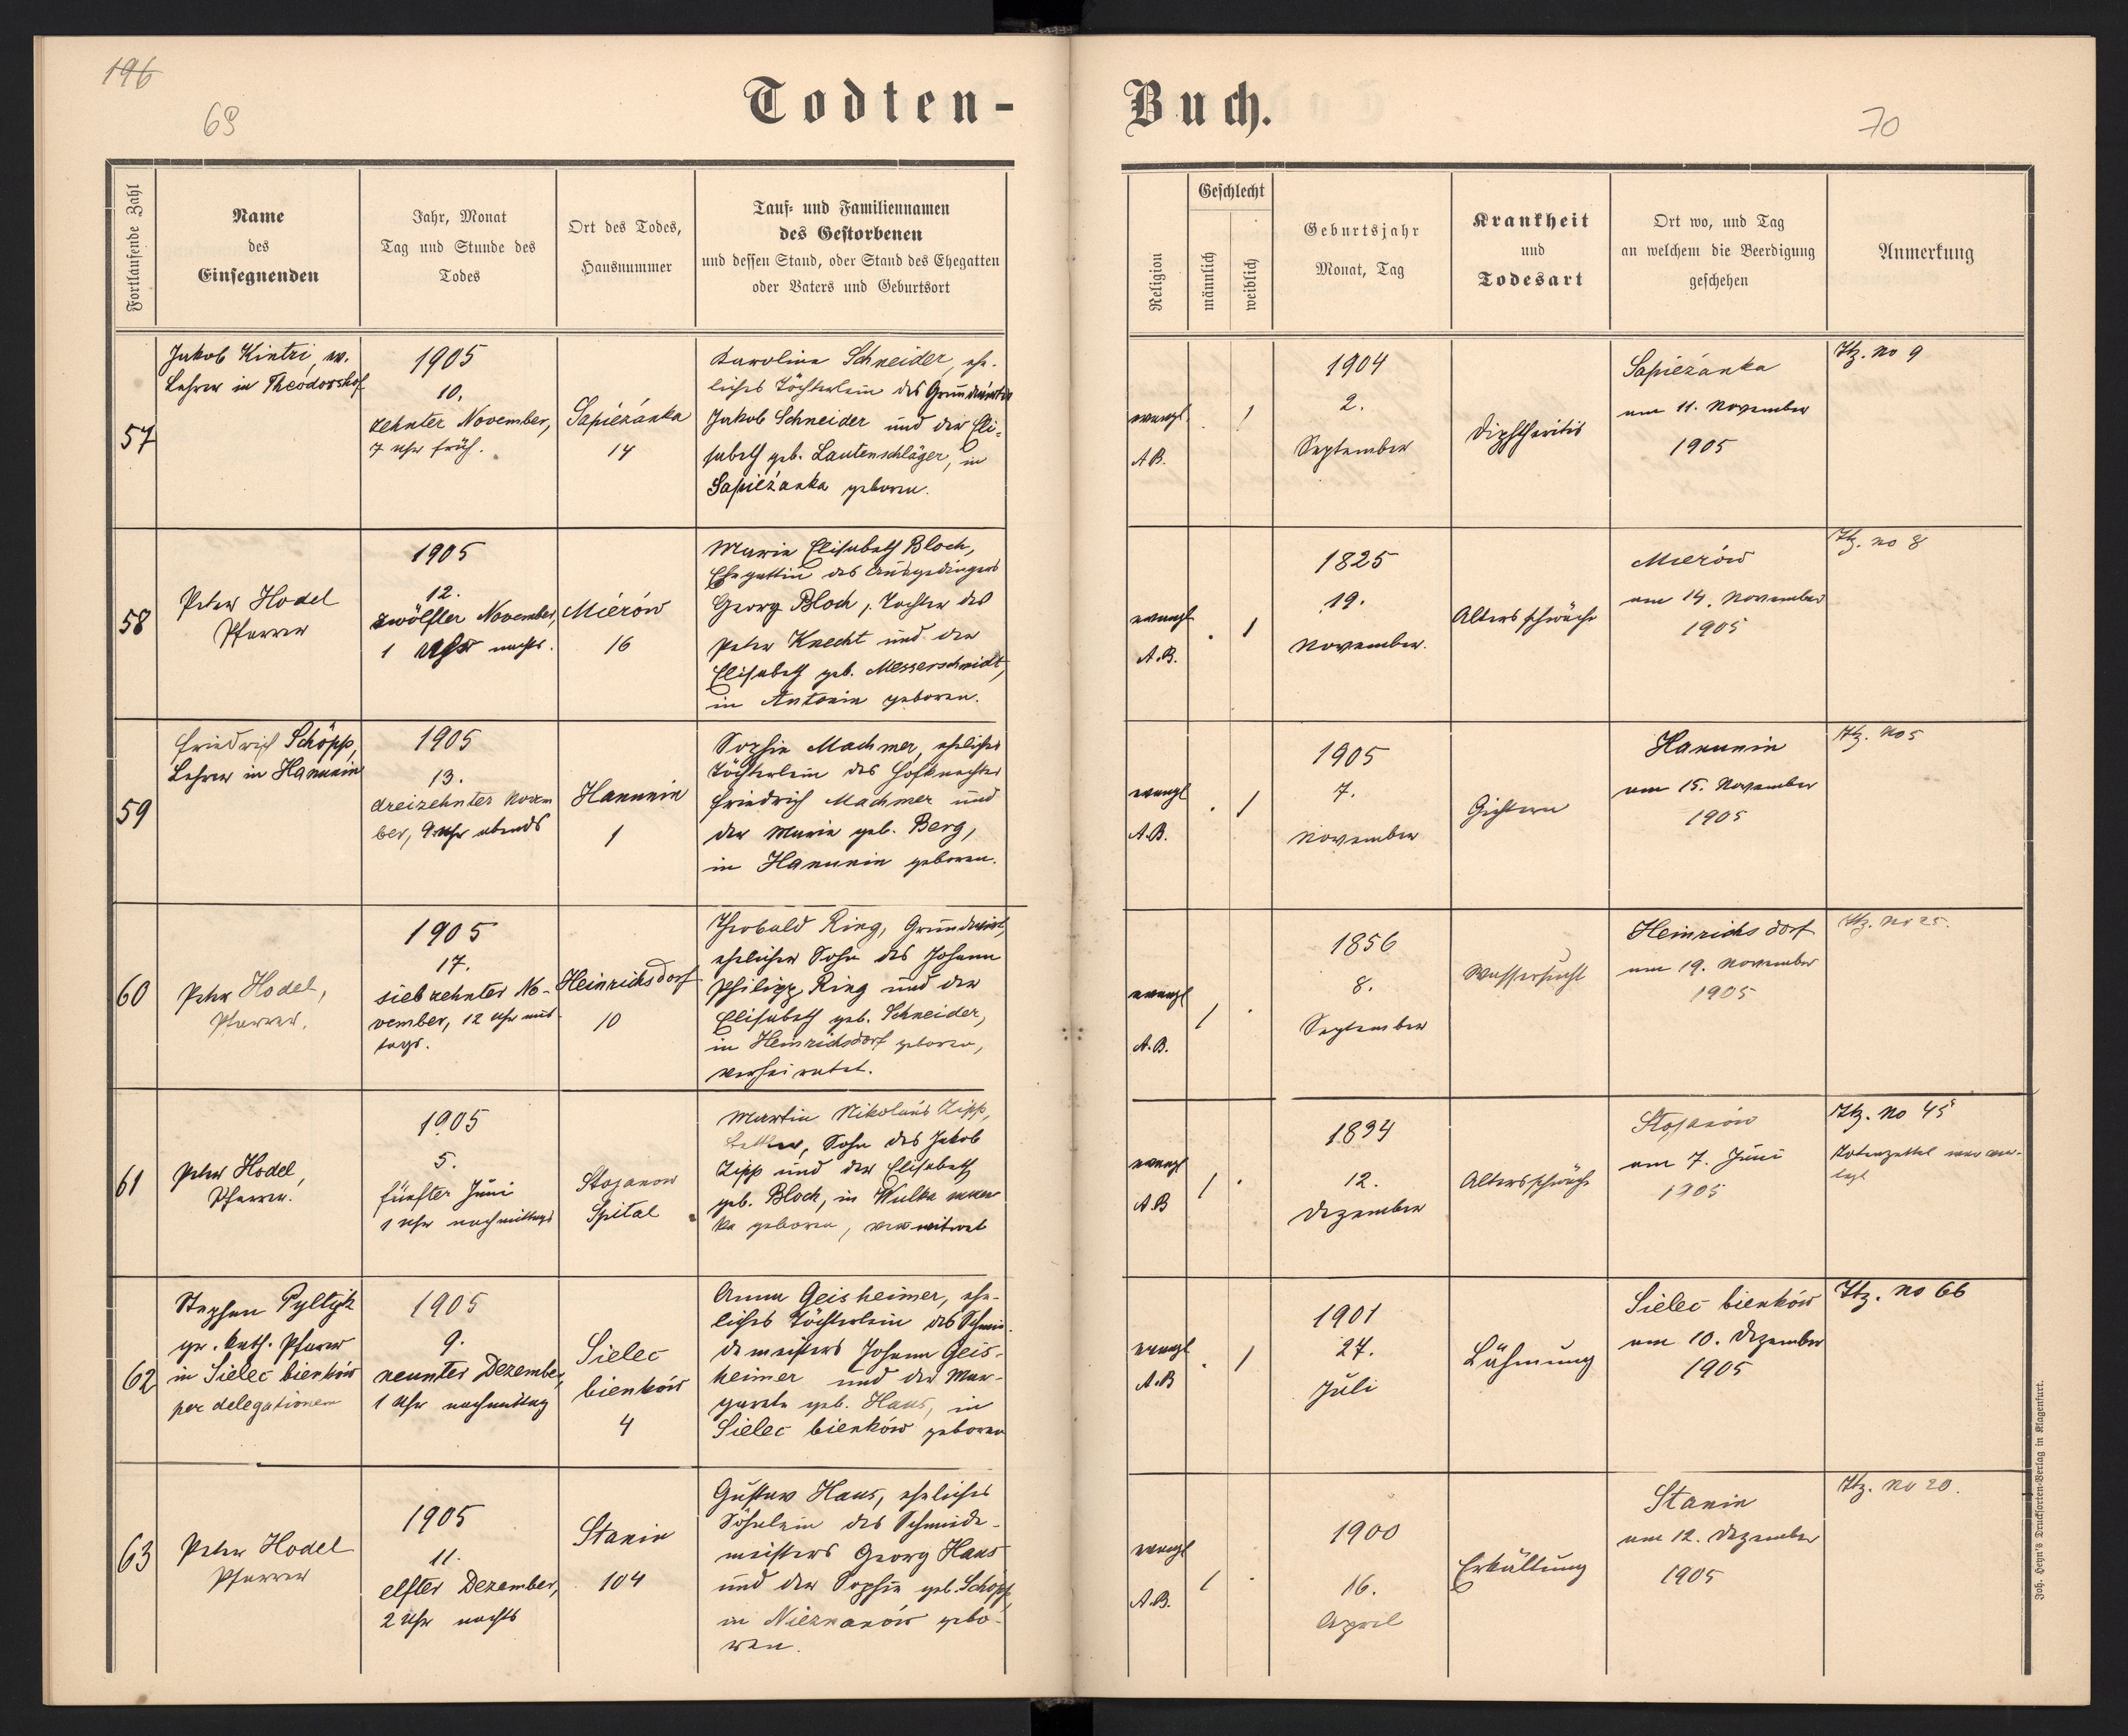 196
69
Todten-
Buch.
70
Fortlaufende Zahl
Name
des
Einsegnenden
Jahr, Monat
Tag und Stunde des
Todes
Ort des Todes,
Hausnummer
Tauf- und Familiennamen
des Gestorbenen
und dessen Stand, oder Stand des Ehegatten
oder Vaters und Geburtsort
Religion
Geschlecht
männlich
weiblich
Geburtsjahr
Monat, Tag
Krankheit
und
Todesart
Ort wo, und Tag
an welchem die Beerdigung
geschehen
Anmerkung
57
Jakob Kintzi, ev.
Lehrer in Theodorshof
1905
10.
zehnter November,
7 Uhr früh.
Sapieżanka
14
Karoline Schneider, ehe-
liches Töchterlein des Grundwirten
Jakob Schneider und der Eli-
sabeth geb. Lautenschläger, in
Sapieżanka geboren.
evangl.
A.B.
. 1
1904
2.
September
Diphtheritis
Sapieżanka
am 11. November
1905
Ttz. No 9
58
Peter Hodel
Pfarrer
1905
12.
zwölfter November,
1 Uhr nachts.
Mierów
16
Maria Elisabeth Bloch,
Ehegattin des Ausgedingers
Georg Bloch, Tochter des
Peter Knecht und der
Elisabeth geb. Messerschmidt,
in Antonin geboren.
evangl
A.B.
. 1
1825
19.
November.
Altersschwäche
Mierów
am 14. November
1905
Ttz. No 8
59
Friedrich Schöpp,
Lehrer in Hanunin
1905
13.
dreizehnter Novem
ber, 9 Uhr abends
Hanunin
1
Sophie Machmer, eheliches
Töchterlein des Hofknechtes
Friedrich Machmer und
der Maria geb. Berg,
in Hanunin geboren.
evangl
A.B.
. 1
1905
7.
November
Gichtern
Hanunin
am 15. November
1905
Ttz. No 5
60
Peter Hodel,
Pfarrer.
1905
17.
siebzehnter No-
vember, 12 Uhr mit-
tags.
Heinrichsdorf
10
Theobald Ring, Grundwirt,
ehelicher Sohn des Johann
Philipp Ring und der
Elisabeth geb. Schneider,
in Heinrichsdorf geboren,
verheiratet.
evangl
A.B.
1 .
1856
8.
September
Wassersucht
Heinrichsdorf
am 19. November
1905
Ttz. No 25.
61
Peter Hodel,
Pfarrer.
1905
5.
fünfter Juni
1 Uhr nachmittags
Stojanow
Spital
Martin Nikolaus Zipp,
Bettler, Sohn des Jakob
Zipp und der Elisabeth
geb. Bloch, in Wulka
ka geboren, verwitwet
evangl
A.B
1 .
1834
12.
Dezember
Altersschwäche
Stojanów
am 7. Juni
1905
Ttz. No 45
Totenzettel war ver-
legt
62
Stephan Pyltyk
gr. kath. Pfarrer
in Sielec bieńków
per delegationem
1905
9.
neunter Dezember,
1 Uhr nachmittag
Sielec
bieńków
4
Anna Geisheimer, ehe-
liches Töchterlein des Schmie-
demeisters Johann Geis-
heimer und der Mar-
garete geb. Haus, in
Sielec bieńków geboren
evangl
A.B
. 1
1901
27.
Juli
Lähmung
Sielec bieńków
am 10. Dezember
1905
Ttz. No 66
63
Peter Hodel
Pfarrer
1905
11.
elfter Dezember,
2 Uhr nachts
Stanin
104
Gustav Haus, eheliches
Söhnlein des Schmiede-
meisters Georg Haus
und der Sophie geb. Schöpp,
in Nieznanów gebo-
ren.
evangl
A.B.
1 .
1900
16.
April
Erkältung
Stanin
am 12. Dezember
1905
Ttz. No 20.
Joh. Heyn's Drucksorten-Verlag in Klagenfurt.